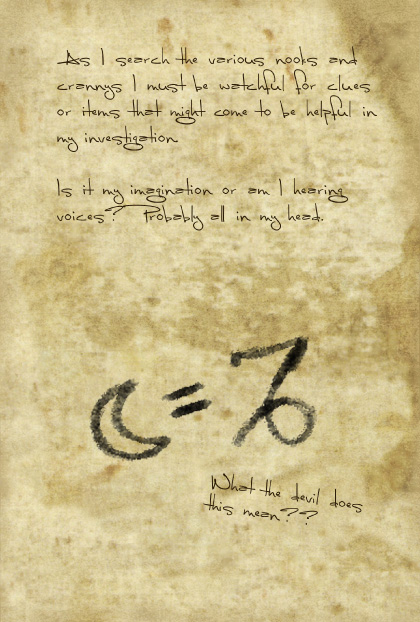 As I search the various nooks and
crannys I must be watchful for clues
or items that might come to be helpful in
my investigation.
Is it my imagination or am I hearing
voices? Probably all in my head.
☾ = ♑
What the devil does
this mean??